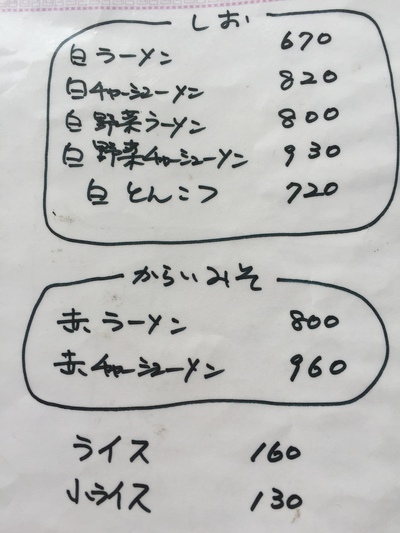 しお
白ラーメン 670
白チャーシューメン 820
白野菜ラーメン 800
白野菜チャーシューメン 930
白とんこつ 720
からいみそ
赤ラーメン 800
赤チャーシューメン 960
ライス 160
小ライス 130